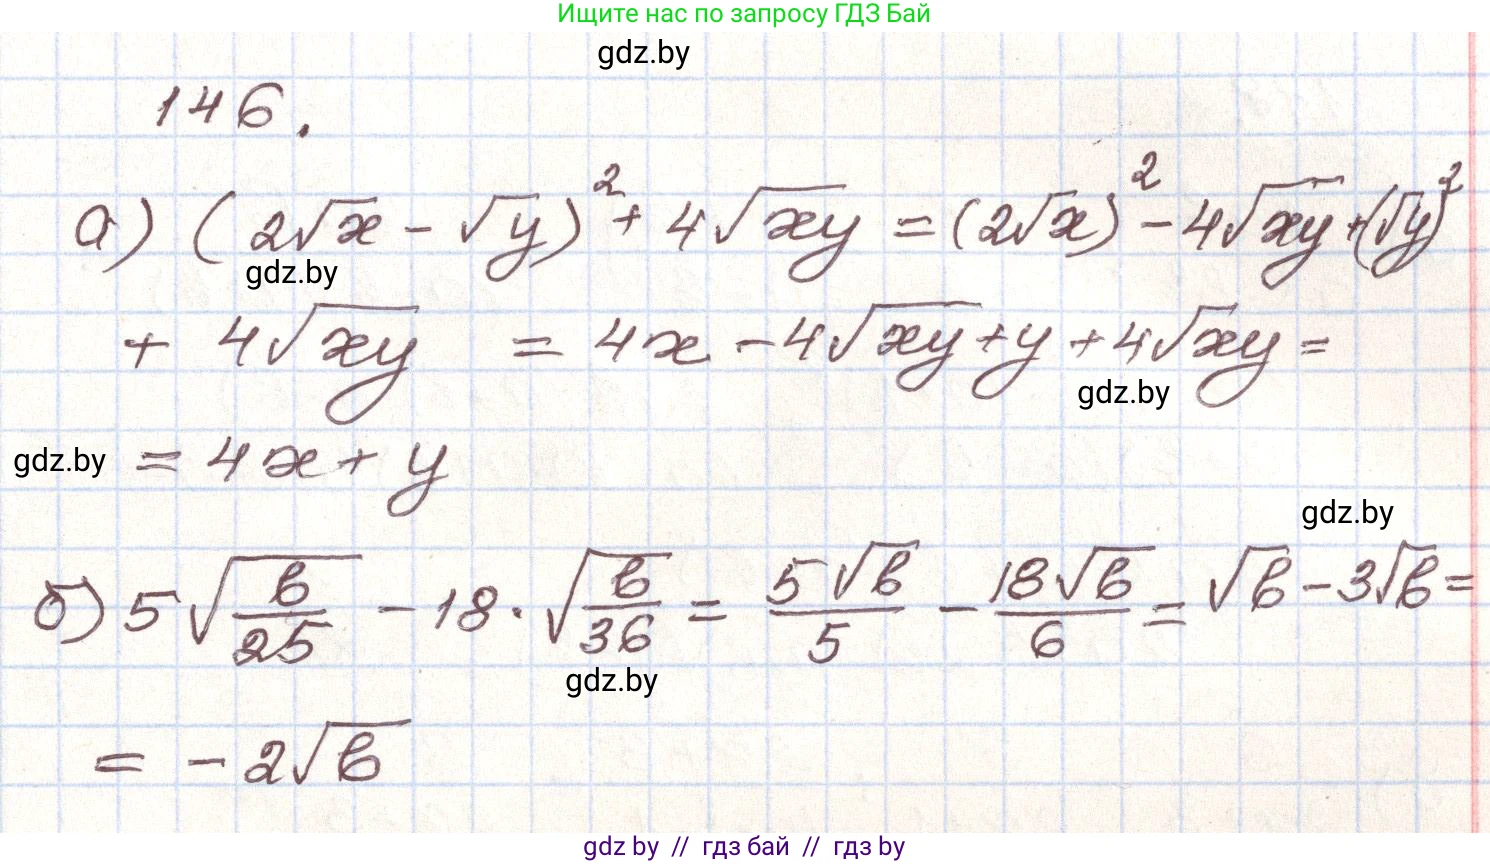 Ищите нас по запросу ГДЗ Бай
gdz.by
146.
а) (2√x - √y)² + 4√xy = (2√x)² - 4√xy + (√y)²
gdz.by
+ 4√xy = 4x - 4√xy + y + 4√xy =
gdz.by
gdz.by = 4x + y
gdz.by
б) 5√(b/25) - 18 · √(b/36) = 5√b/5 - 18√b/6 = √b - 3√b =
gdz.by
= - 2√b
gdz.by // гдз бай // гдз by